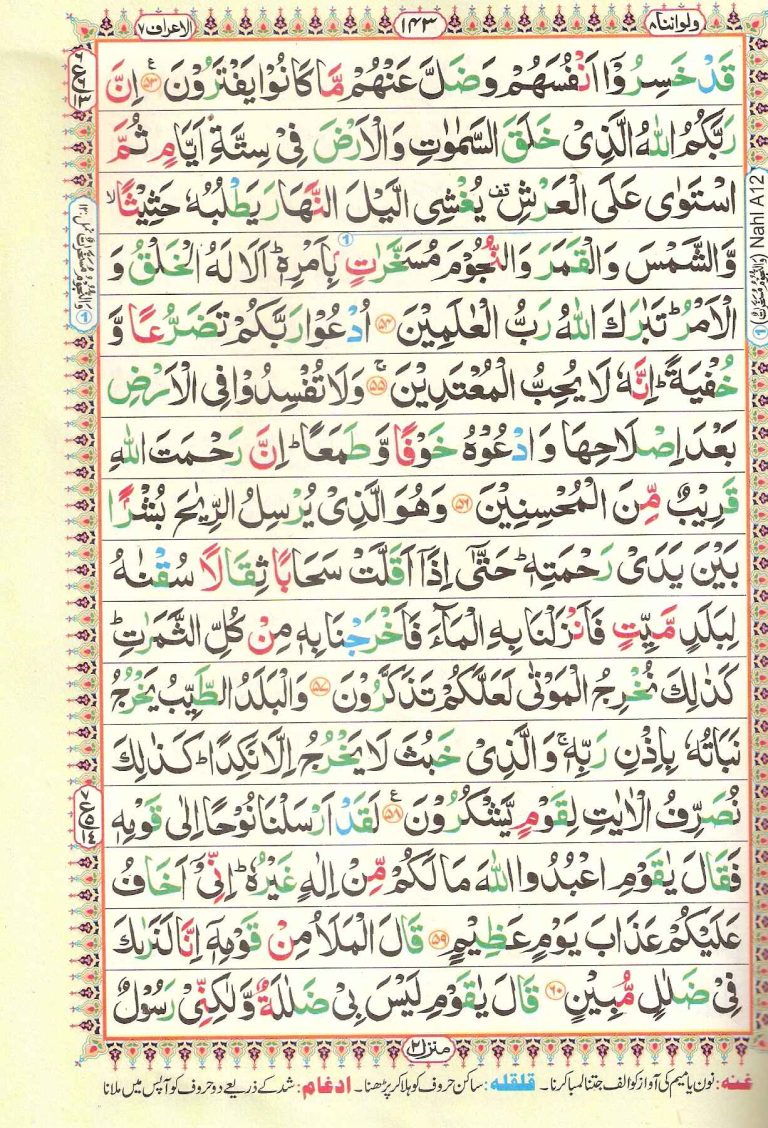 ولواننا ۸
۱۴۳
الاعراف ۷
قَدْ خَسِرُوْۤا اَنْفُسَهُمْ وَضَلَّ عَنْهُمْ مَّا كَانُوْا يَفْتَرُوْنَ ﴿۵۳﴾ اِنَّ
رَبَّكُمُ اللّٰهُ الَّذِىْ خَلَقَ السَّمٰوٰتِ وَالْاَرْضَ فِىْ سِتَّةِ اَيَّامٍ ثُمَّ
اسْتَوٰى عَلَى الْعَرْشِ قف يُغْشِى الَّيْلَ النَّهَارَ يَطْلُبُهٗ حَثِيْثًا ۙ
وَّالشَّمْسَ وَالْقَمَرَ وَالنُّجُوْمَ مُسَخَّرٰتٍۭ بِاَمْرِهٖ ؕ اَلَا لَهُ الْخَلْقُ وَ
الْاَمْرُ ؕ تَبٰرَكَ اللّٰهُ رَبُّ الْعٰلَمِيْنَ ﴿۵۴﴾ اُدْعُوْا رَبَّكُمْ تَضَرُّعًا وَّ
خُفْيَةً ؕ اِنَّهٗ لَا يُحِبُّ الْمُعْتَدِيْنَ ﴿۵۵﴾ ۚ وَلَا تُفْسِدُوْا فِى الْاَرْضِ
بَعْدَ اِصْلَاحِهَا وَادْعُوْهُ خَوْفًا وَّطَمَعًا ؕ اِنَّ رَحْمَتَ اللّٰهِ
قَرِيْبٌ مِّنَ الْمُحْسِنِيْنَ ﴿۵۶﴾ وَهُوَ الَّذِىْ يُرْسِلُ الرِّيٰحَ بُشْرًۢا
بَيْنَ يَدَىْ رَحْمَتِهٖ ؕ حَتّٰۤى اِذَاۤ اَقَلَّتْ سَحَابًا ثِقَالًا سُقْنٰهُ
لِبَلَدٍ مَّيِّتٍ فَاَنْزَلْنَا بِهِ الْمَآءَ فَاَخْرَجْنَا بِهٖ مِنْ كُلِّ الثَّمَرٰتِ ؕ
كَذٰلِكَ نُخْرِجُ الْمَوْتٰى لَعَلَّكُمْ تَذَكَّرُوْنَ ﴿۵۷﴾ وَالْبَلَدُ الطَّيِّبُ يَخْرُجُ
نَبَاتُهٗ بِاِذْنِ رَبِّهٖ ۚ وَالَّذِىْ خَبُثَ لَا يَخْرُجُ اِلَّا نَكِدًا ؕ كَذٰلِكَ
نُصَرِّفُ الْاٰيٰتِ لِقَوْمٍ يَّشْكُرُوْنَ ﴿۵۸﴾ لَقَدْ اَرْسَلْنَا نُوْحًا اِلٰى قَوْمِهٖ
فَقَالَ يٰقَوْمِ اعْبُدُوا اللّٰهَ مَا لَكُمْ مِّنْ اِلٰهٍ غَيْرُهٗ ؕ اِنِّىْۤ اَخَافُ
عَلَيْكُمْ عَذَابَ يَوْمٍ عَظِيْمٍ ﴿۵۹﴾ قَالَ الْمَلَاُ مِنْ قَوْمِهٖۤ اِنَّا لَنَرٰٮكَ
فِىْ ضَلٰلٍ مُّبِيْنٍ ﴿۶۰﴾ قَالَ يٰقَوْمِ لَيْسَ بِىْ ضَلٰلَةٌ وَّلٰكِنِّىْ رَسُوْلٌ
Nahl A12
منزل ۲
غنه: نون یا میم کی آواز کو الف جتنا لمبا کرنا۔ قلقله: ساکن حروف کو ہلا کر پڑھنا۔ ادغام: شد کے ذریعے دو حروف کو آپس میں ملانا